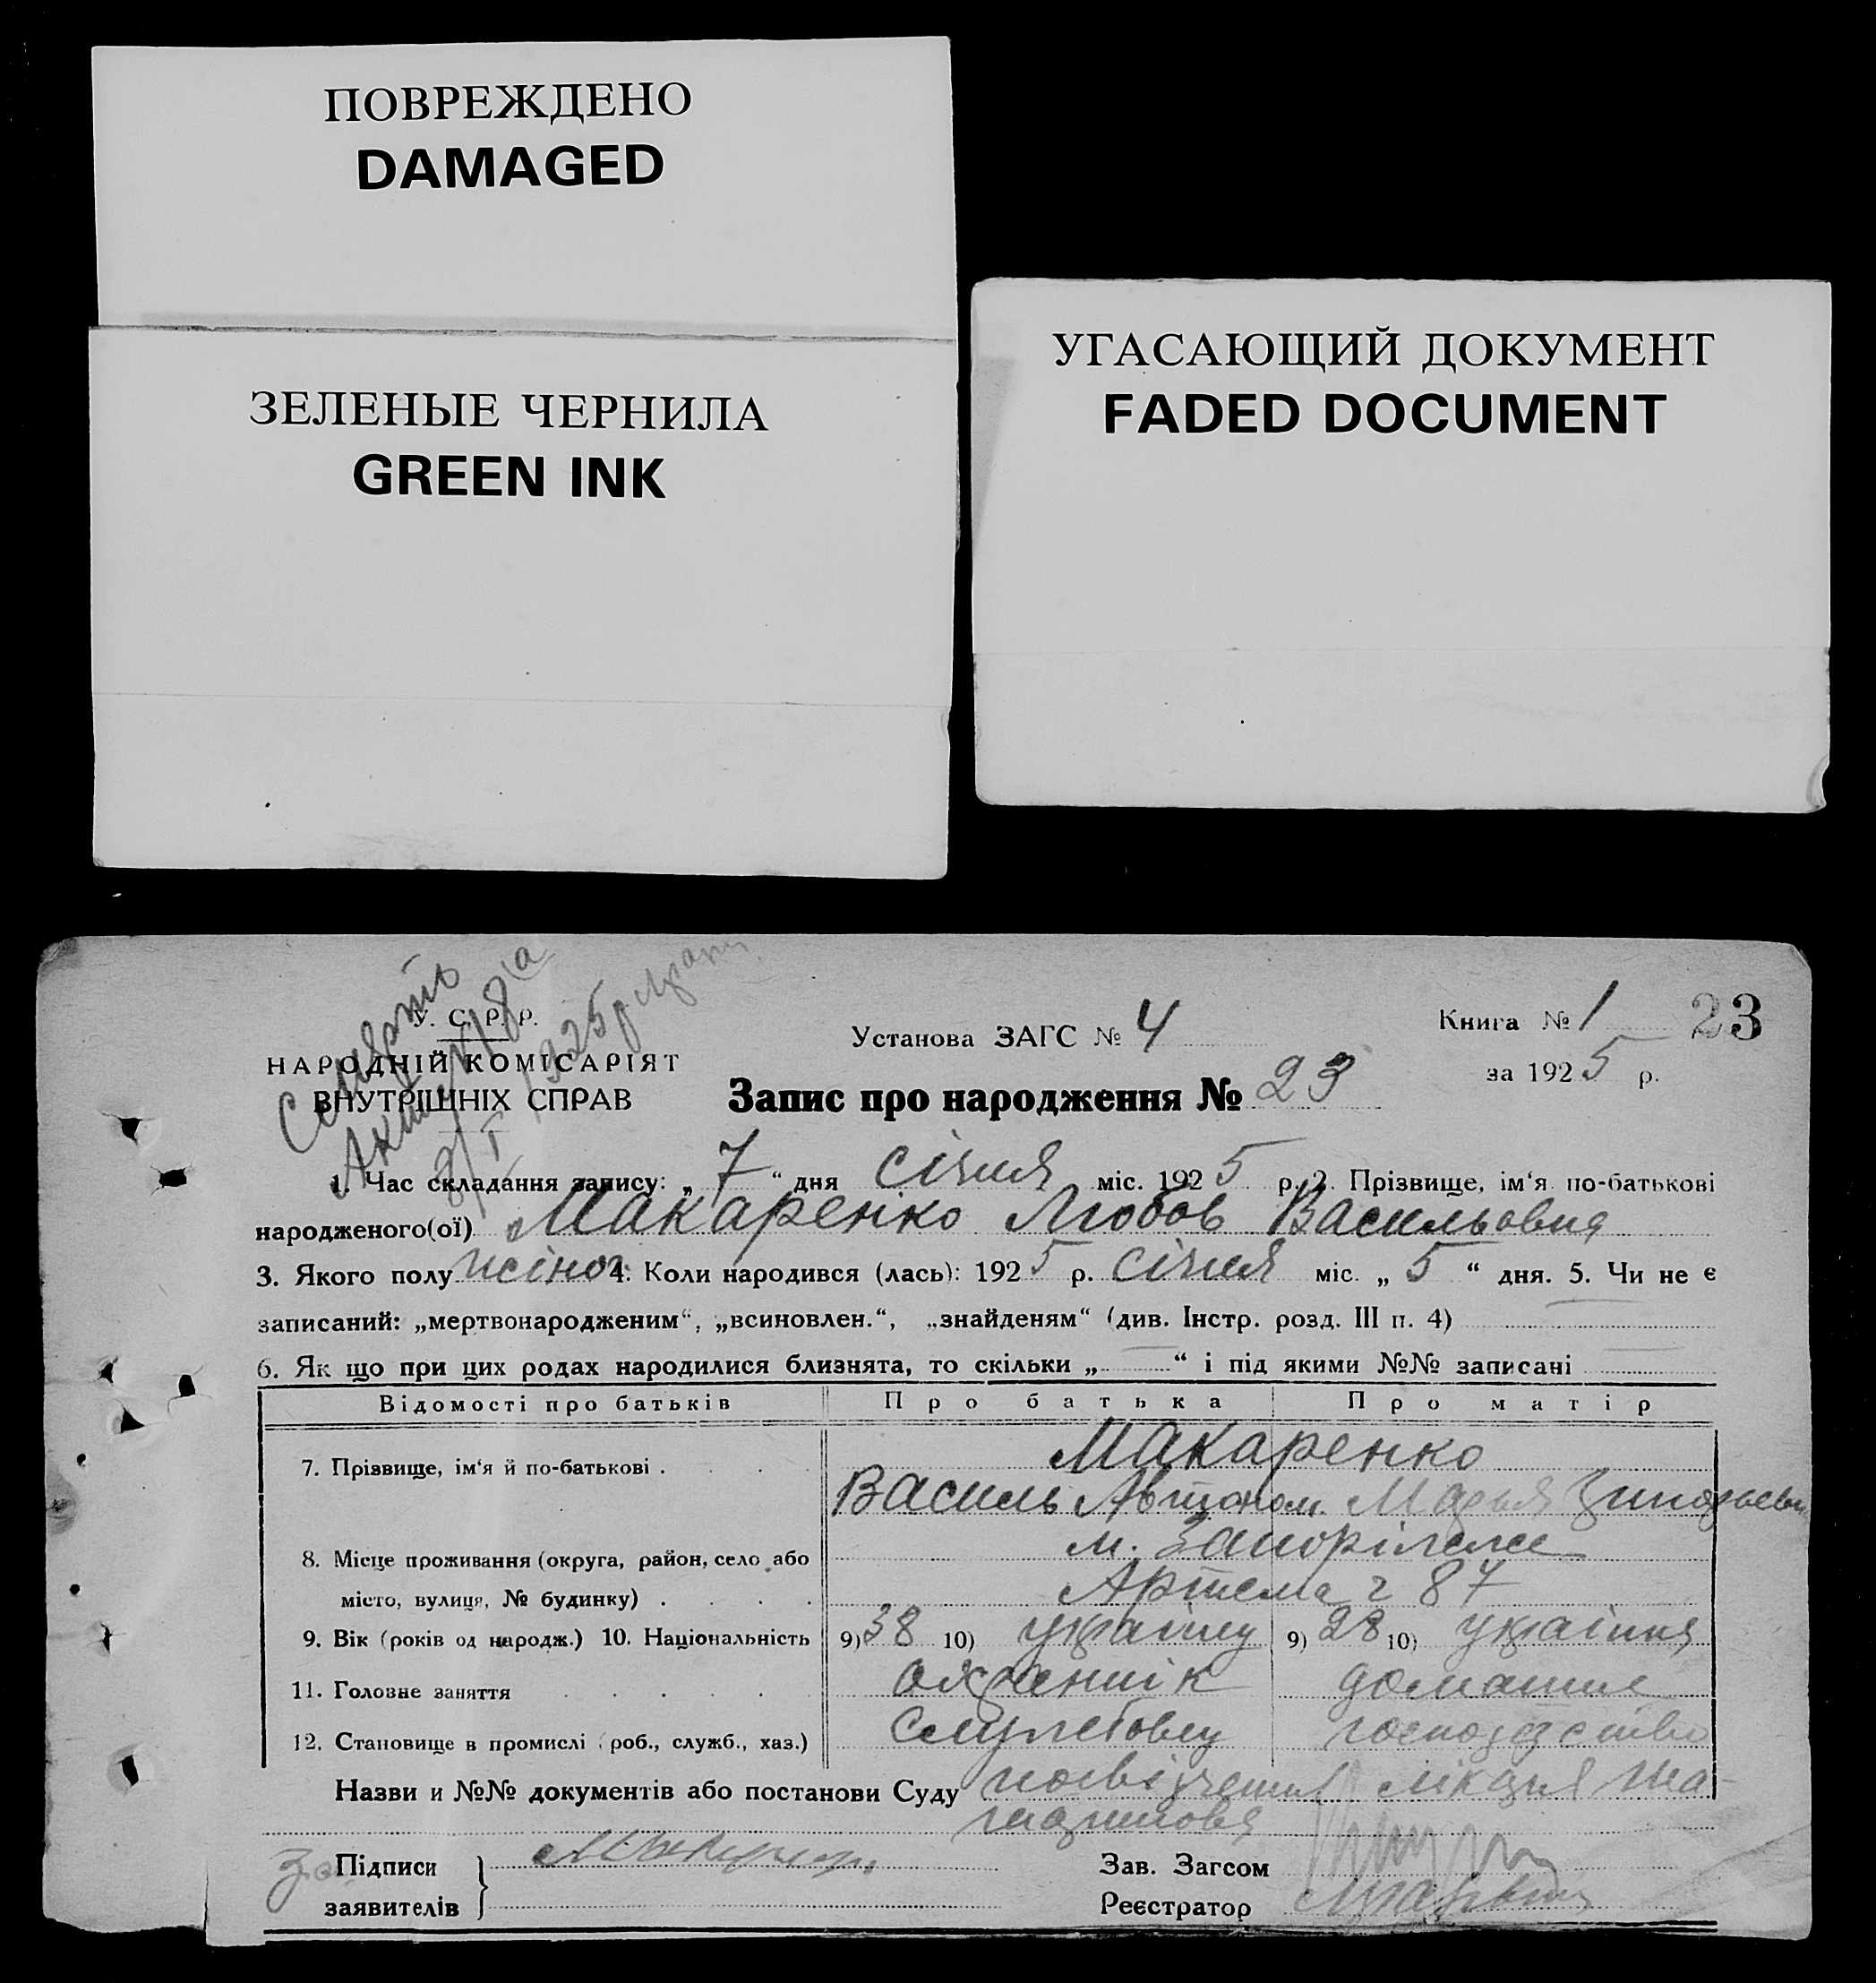 ПОВРЕЖДЕНО
DAMAGED
ЗЕЛЕНЫЕ ЧЕРНИЛА
GREEN INK
УГАСАЮЩИЙ ДОКУМЕНТ
FADED DOCUMENT
Смерть
Акт №8а
8/I 1925р
У. С. Р. Р.
НАРОДНІЙ КОМІСАРІЯТ
ВНУТРІШНІХ СПРАВ
Установа ЗАГС № 4
Книга № 1 23
за 1925 р.
Запис про народження № 23
1. Час складання запису: „ 7 “ дня січня міс. 1925 р. 2. Прізвище, ім‘я по-батькові
народженого(ої) Макаренко Любов Васильовна
3. Якого полу жіноч 4. Коли народився (лась): 1925 р. січня міс. „ 5 “ дня. 5. Чи не є
записаний: „мертвонародженим“, „всиновлен.“, „знайденям“ (див. Інстр. розд. III п. 4)
6. Як що при цих родах народилися близнята, то скільки „ — “ і під якими №№ записані —
Відомості про батьків Про батька Про матір
7. Прізвище, ім‘я й по-батькові . Макаренко
Василь Автоном. Марья
8. Місце проживання (округа, район, село або м. Запоріжже
місто, вулиця, № будинку) . Артема ч 87
9. Вік (років од народж.) 10. Національність 9) 38 10) україн 9) 28 10) українка
11. Головне заняття охренник домашне
12. Становище в промислі (роб., служб., хаз.) службовец господарство
Назви и №№ документів або постанови Суду посвідчення лікаря
За Підписи Зав. Загсом
заявителів Реєстратор